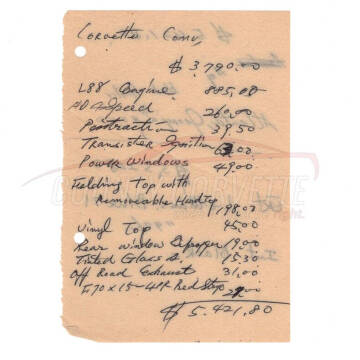 Corvette Conv,
$ 3,790.00
L88 Engine 885.00
HD 4 Speed 260.00
Positraction 39.50
Transistor Ignition 63.00
Power Windows 49.00
Folding Top with
Removable Hardtop 198.00
Vinyl Top 45.00
Rear Window 19.00
Tinted Glass 15.30
Off Road Exhaust 31.00
F70 x 15 - 4 PR Red Stripe
$ 5,421.80